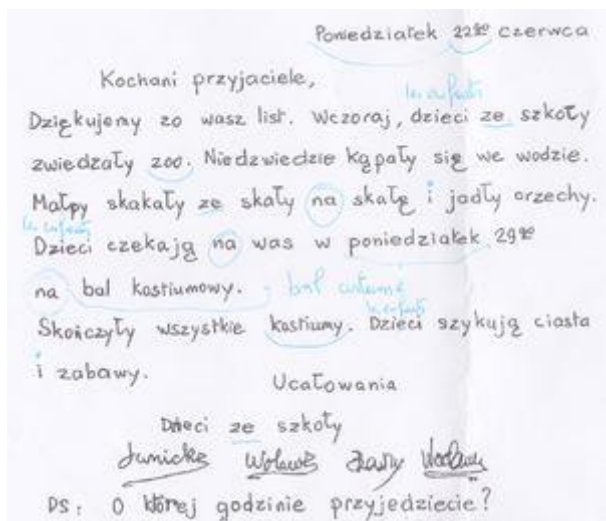 Poniedziałek 22go czerwca
Kochani przyjaciele,
les enfants
Dziękujemy zo wasz list. Wczoraj, dzieci ze szkoły
zwiedzały zoo. Niedzwiedzie kąpały się we wodzie.
Małpy skakały ze skały na skałę i jadły orzechy.
les enfants
Dzieci czekają na was w poniedziałek 29go
na bal kostiumowy. bal costumé
les enfants
Skończyły wszystkie kostiumy. Dzieci szykują ciasta
i zabawy.
Ucałowania
Dzieci ze szkoły
PS: O której godzinie przyjedziecie?